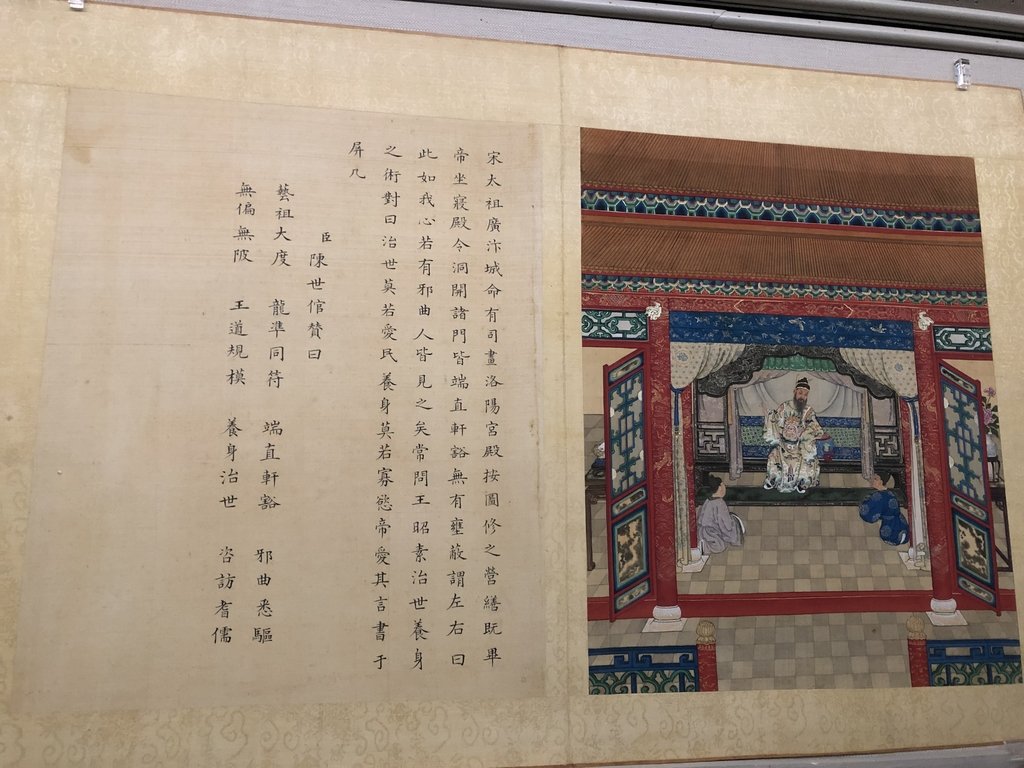 宋太祖廣汴城命有司畫洛陽宮殿按圖修之營繕既畢
帝坐寢殿令洞開諸門皆端直軒豁無有壅蔽謂左右曰
此如我心若有邪曲人皆見之矣常問王昭素治世養身
之術對曰治世莫若愛民養身莫若寡慾帝愛其言書于
屏几
臣陳世倌贊曰
藝祖大度 龍準同符 端直軒豁 邪曲悉驅
無偏無陂 王道規模 養身治世 咨訪耆儒